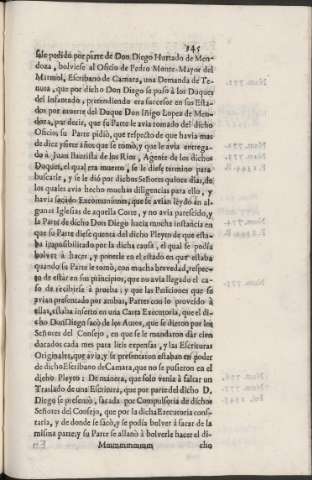 145
se le pedido por parte de Don Diego Hurtado de Men-
doza, bolviese al Oficio de Pedro Monte-Mayor del
Marmol, Escribano de Camara, una Demanda de Te-
nuta, que por dicho Don Diego se puso à los Duques
del Infantado, pretendiendo era sucesor en sus Esta-
dos por muerte del Duque Don Iñigo Lopez de Men-
doza, por decir, que su Parte le avia tomado del dicho
Oficio; su Parte pidiò, que respecto de que havia mas
de diez y siete años que se tomò, y que le avia entrega-
do à Juan Bautista de los Rios, Agente de los dichos
Duques, el qual era muerto, se le diese termino para
buscarle, y se le diò por dichos Señores quince dias, de
los quales avia hecho muchas diligencias para ello, y
havia sacado Excomuniones, que se avian leydo en al-
gunas Iglesias de aquella Corte, y no avia parescido, y
la Parte de dicho Don Diego hacia mucha instancia en
que su Parte diese quenta del dicho Pleyto de que esta-
ba imposibilitado por la dicha causa, el qual se podia
bolver à hacer, y ponerle en el estado en que estaba
quando su Parte le tomò, con mucha brevedad, respec-
to de estàr en sus principios, que no avia llegado el ca-
so de recibirse à prueba; y que las Peticiones que se
avian presentado por ambas Partes con lo proveido à
ellas, estaba inserto en una Carta Executoria, que el di-
cho Don Diego sacò de los Autos, que se dieron por los
Señores del Consejo, en que se le mandaron dàr cien
ducados cada mes para litis expensas, y las Escrituras
Originales, que avia, y se presentaron estaban en poder
de dicho Escribano de Camara, que no se pusieron en el
dicho Pleyto: De manera, que solo venia à faltar un
Traslado de una Escritura, que por parte del dicho D.
Diego se presentò, sacada por Compulsoria de dichos
Señores del Consejo, que por la dicha Executoria cons-
taria, y de donde se sacò, y se podia bolver à sacar de la
misma parte; y su Parte se allanò à bolverle hacer el di-
cho